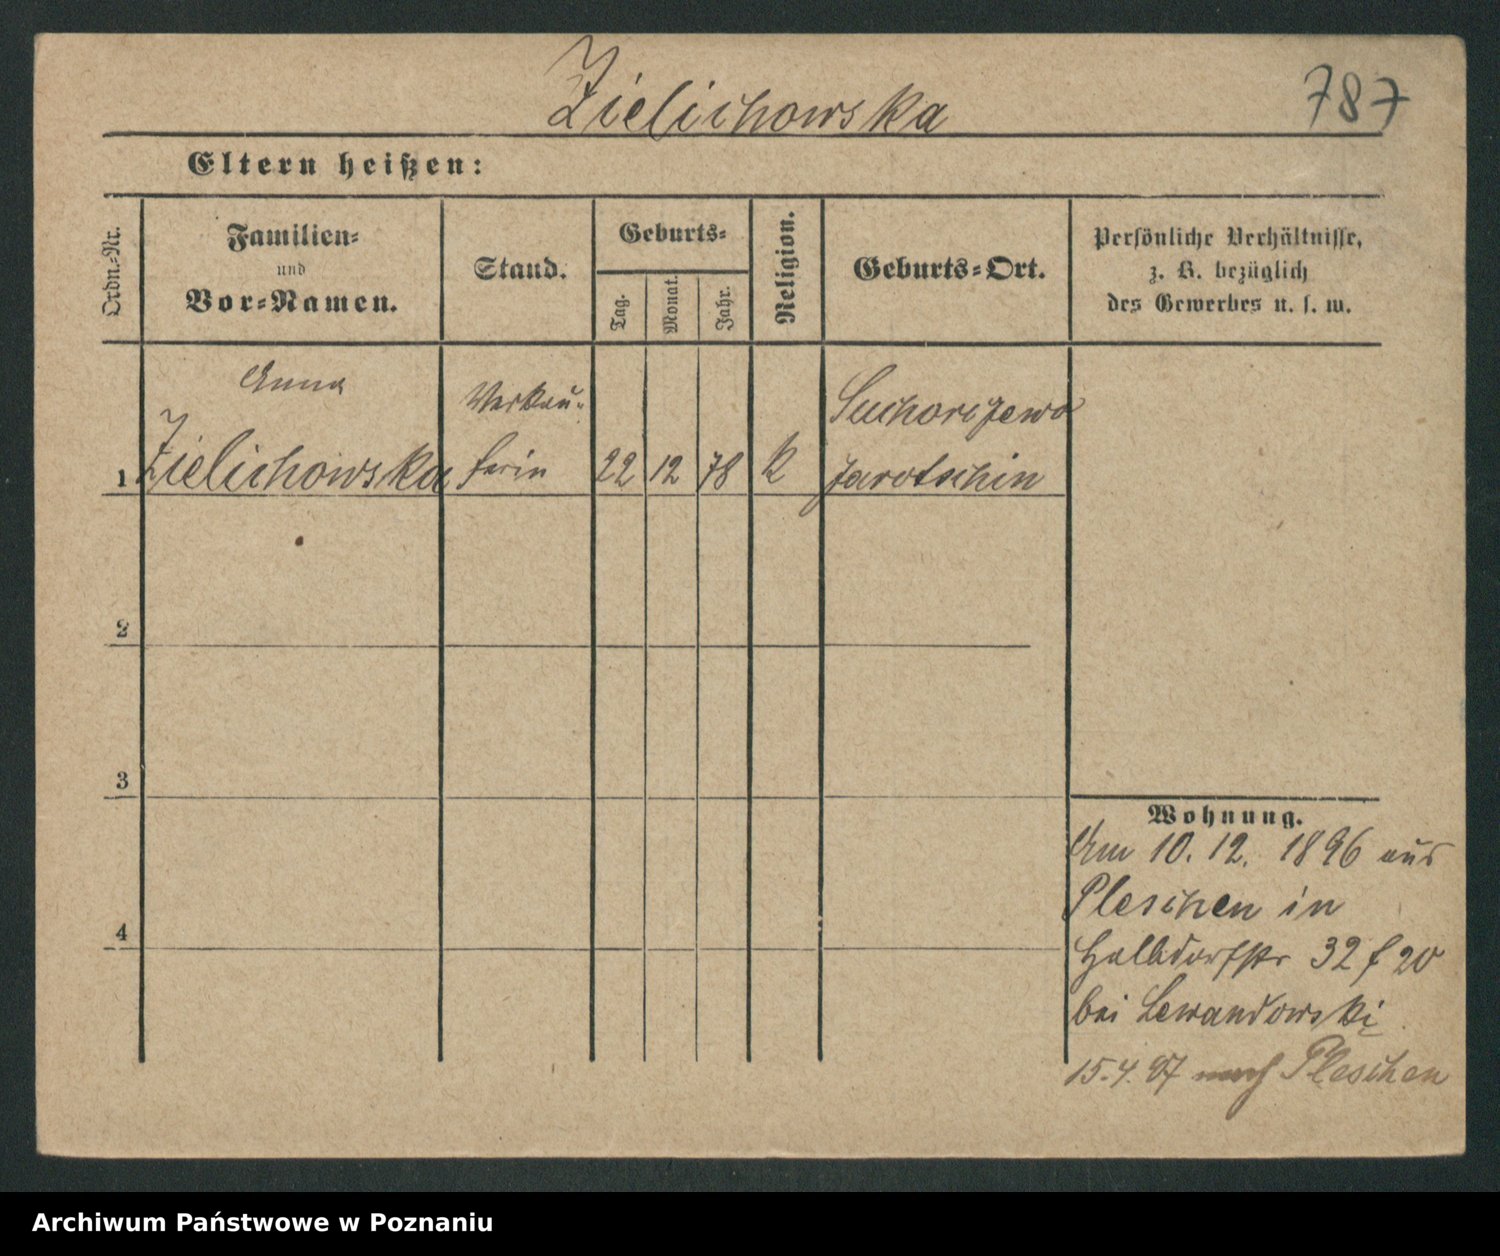 Zielichowska
787
Eltern heißen:
Ordn.-Nr.
Familien-
und
Vor-Namen.
Stand.
Geburts-
Tag.
Monat.
Jahr.
Religion.
Geburts-Ort.
Persönliche Verhältnisse,
z. B. bezüglich
des Gewerbes u. s. w.
Anna
Verkäu-
Suchorzewo
1 Zielichowska ferin 22 12 78 K Jarotschin
2
3
Wohnung.
Am 10. 12. 1896 aus
Pleschen in
4
Halbdorfstr 32 f 20
bei Lewandowski
15.4.97 nach Pleschen
Archiwum Państwowe w Poznaniu